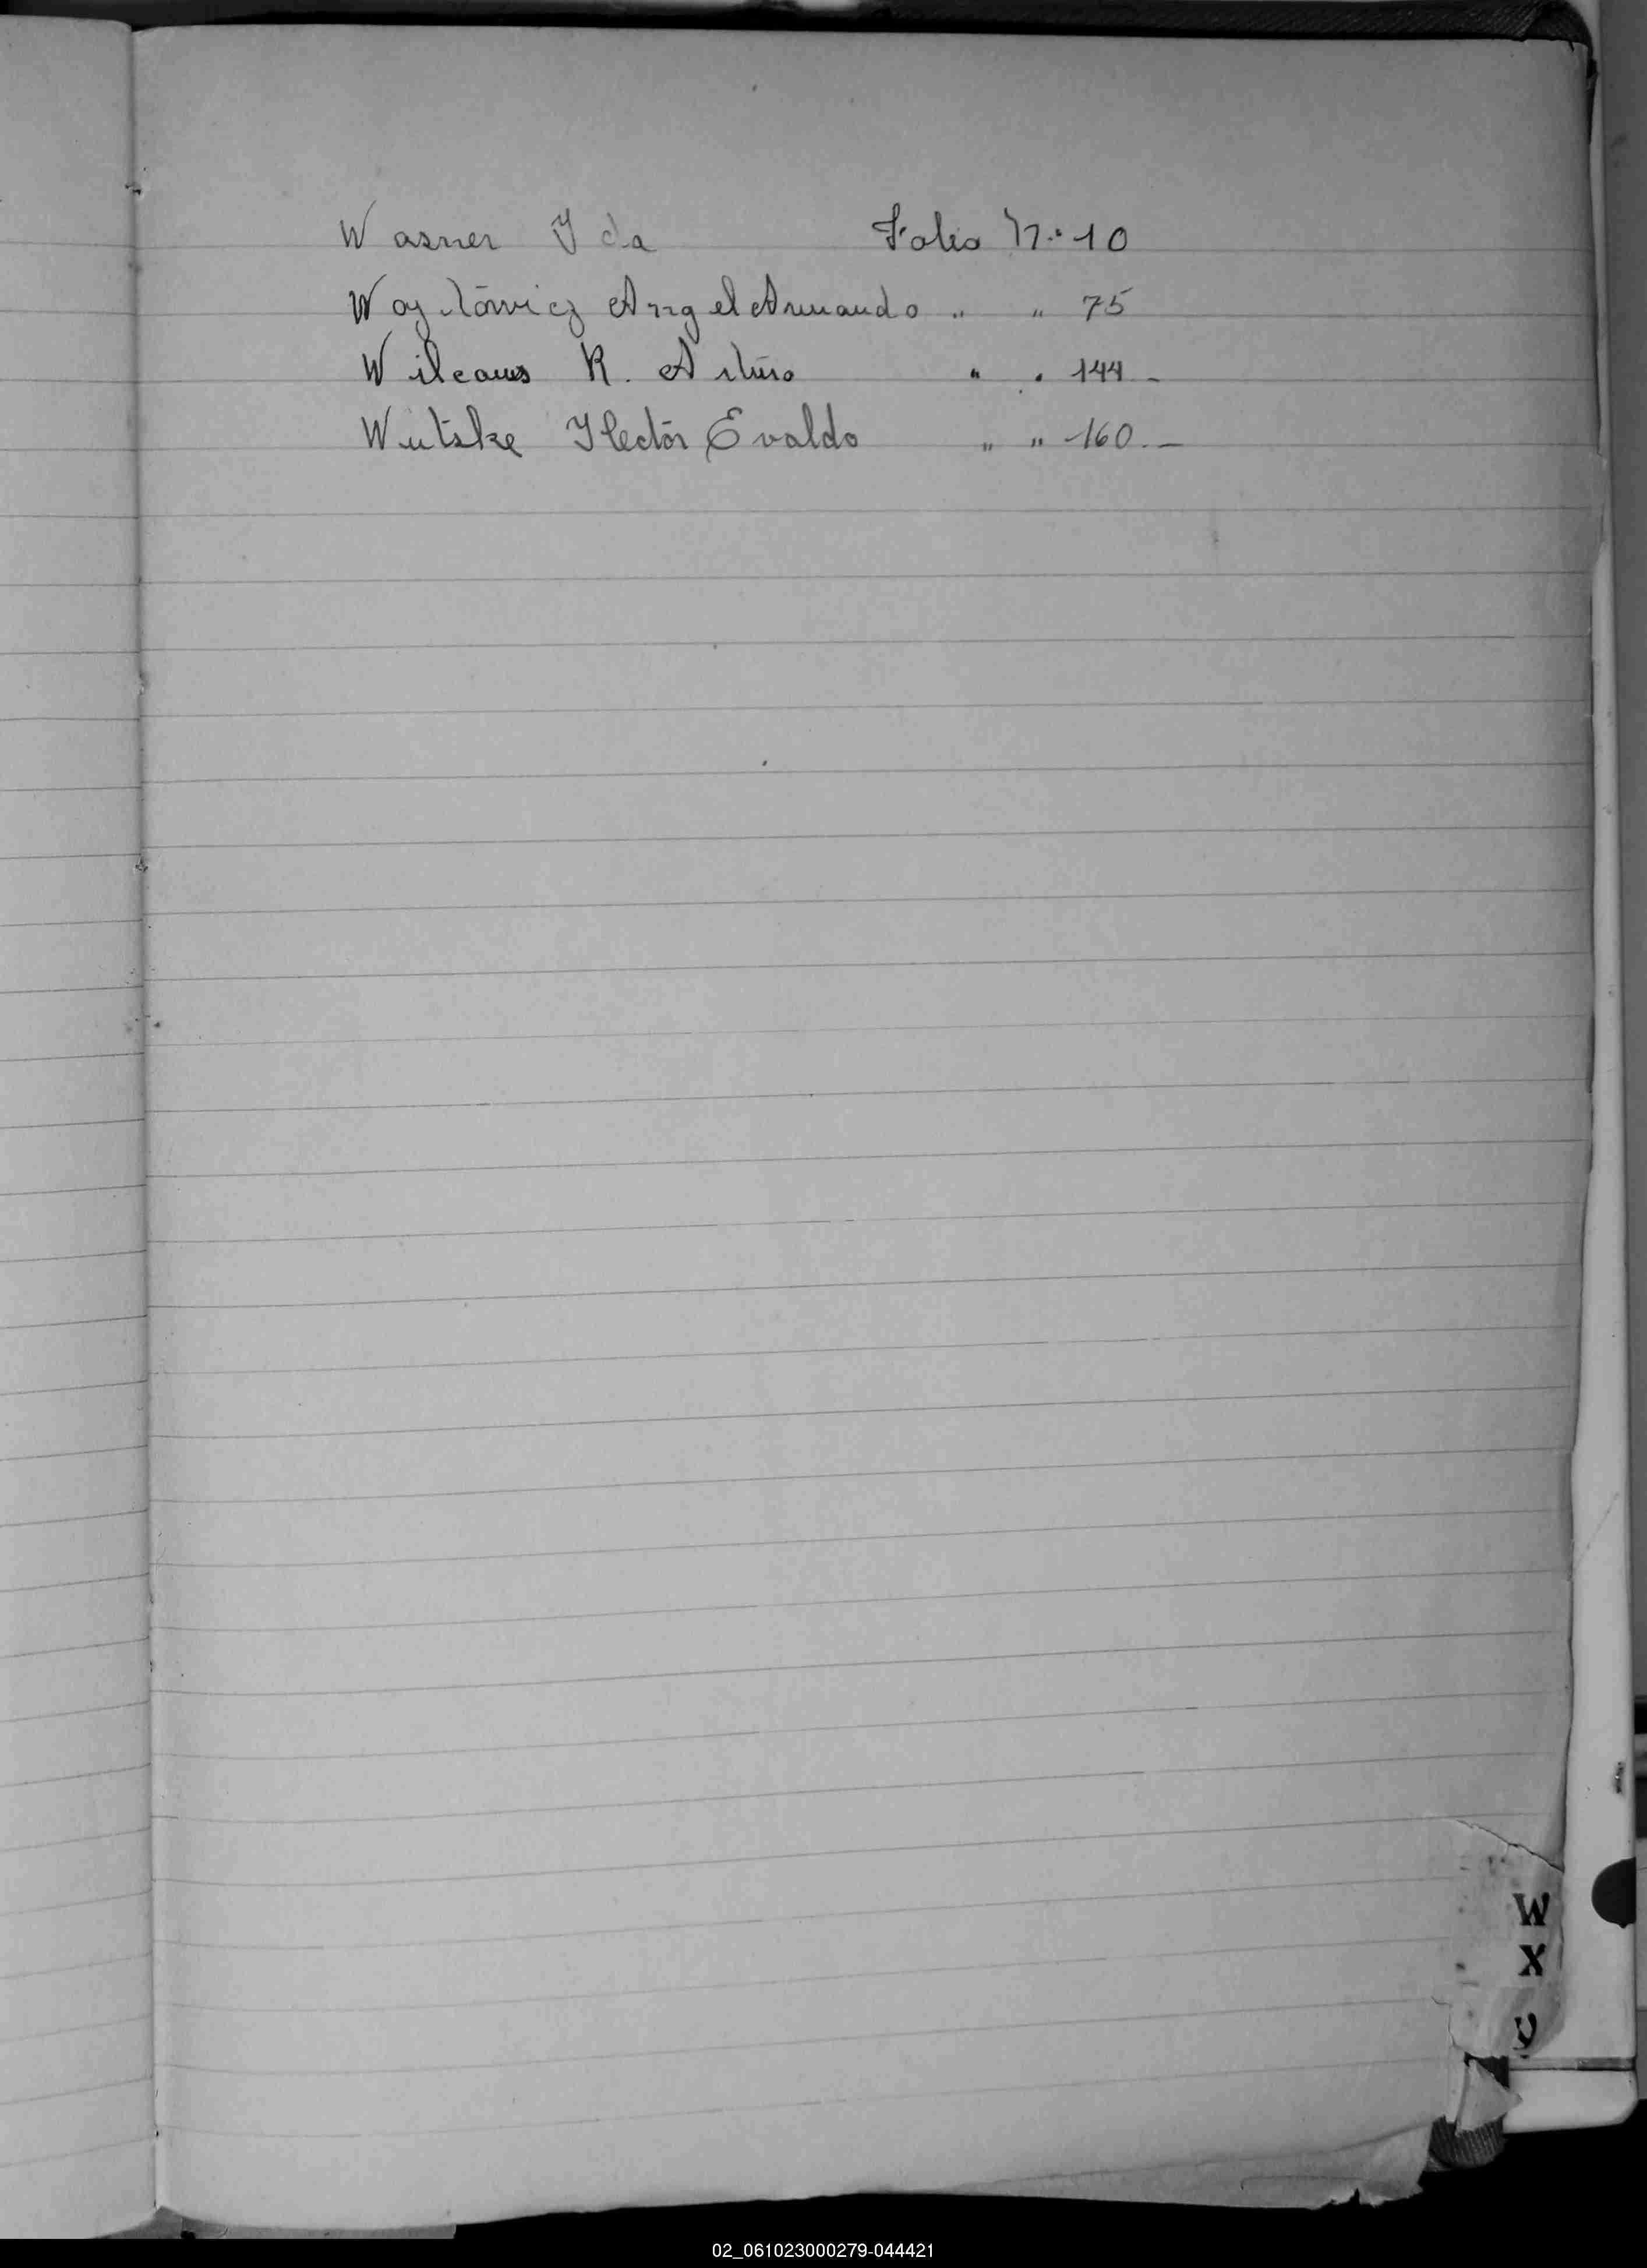 Wasner Ida Folio N.° 10
Woytowicz Angel Armando " " 75
Wilcaus R. Arturo " " 144 -
Wutske Hector Evaldo " " 160.-
W
X
Y
02_061023000279-044421